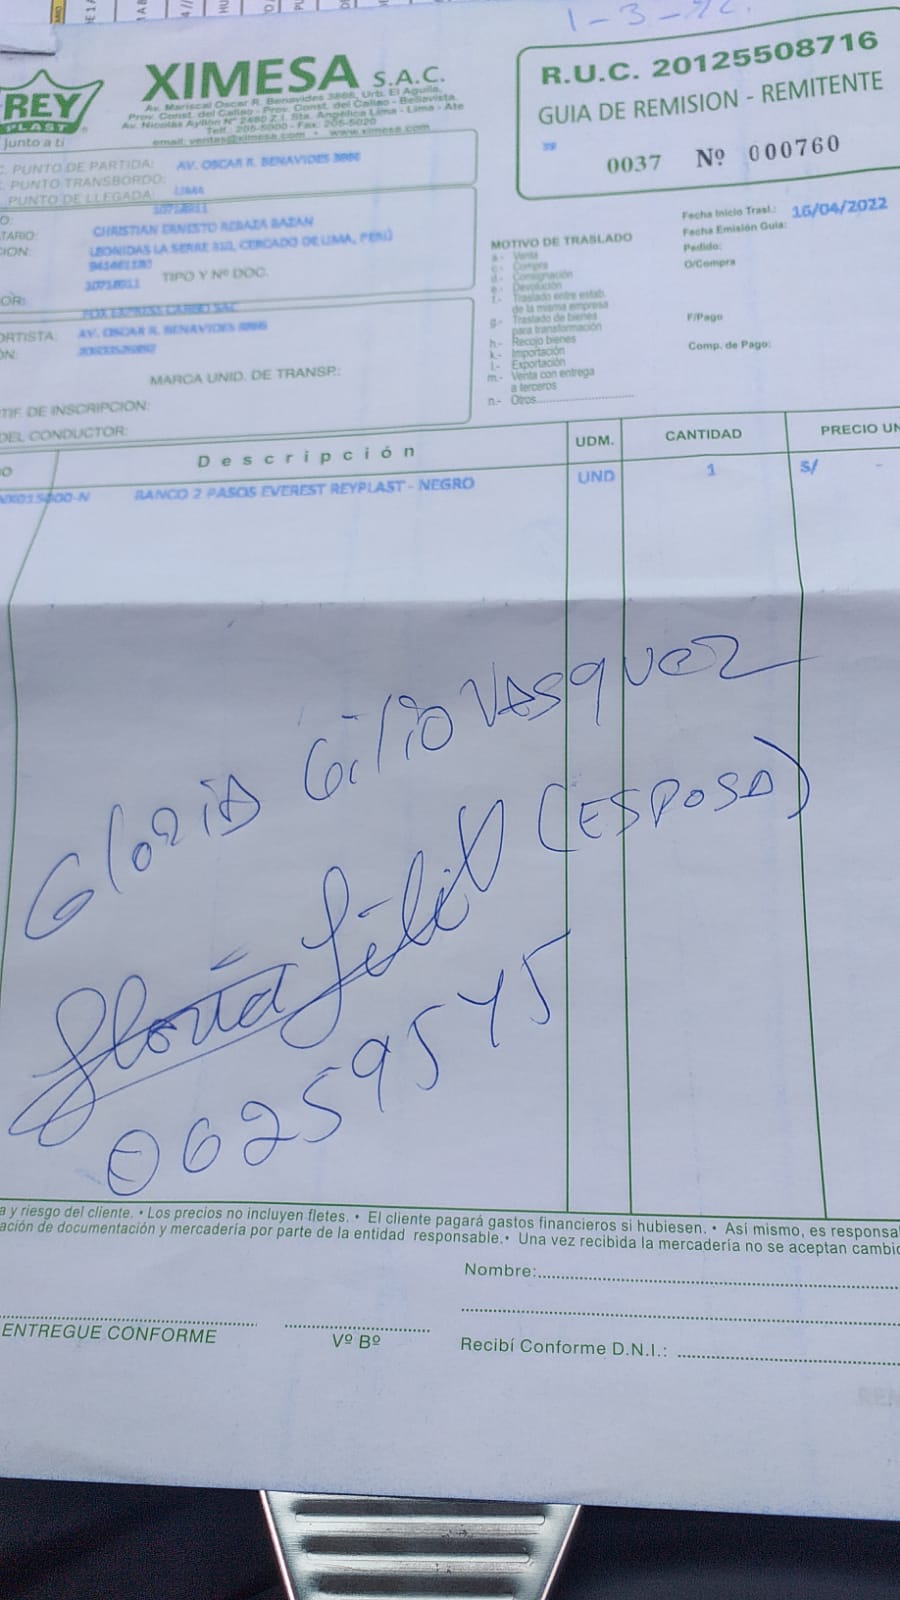 1-3-
REY
PLAST
Junto a ti
XIMESA S.A.C.
Av. Mariscal Oscar R. Benavides 3866, Urb. El Aguila,
Prov. Const. del Callao - Prov. Const. del Callao - Bellavista
Av. Nicolás Ayllón Nº 2480 Z.I. Sta. Angélica Lima - Lima - Ate
Telf.: 205-5000 - Fax: 205-5020
email: ventas@ximesa.com • www.ximesa.com
R.U.C. 20125508716
GUIA DE REMISION - REMITENTE
0037 Nº 000760
C. PUNTO DE PARTIDA: AV. OSCAR R. BENAVIDES 3866
C. PUNTO TRANSBORDO:
PUNTO DE LLEGADA: LIMA
10718911
TARIO: CHRISTIAN ERNESTO REBAZA BAZAN
CION: LEONIDAS LA SERRE 310, CERCADO DE LIMA, PERÚ
10718911 TIPO Y Nº DOC.
OR: FOX EXPRESS CARGO SAC
ORTISTA: AV. OSCAR R. BENAVIDES 3866
ÓN:
MARCA UNID. DE TRANSP.:
TIF. DE INSCRIPCION:
DEL CONDUCTOR:
MOTIVO DE TRASLADO
a.- Venta
c.- Compra
d.- Consignación
e.- Devolución
f.- Traslado entre estab.
de la misma empresa
g.- Traslado de bienes
para transformación
h.- Recojo bienes
k.- Importación
l.- Exportación
m.- Venta con entrega
a terceros
n.- Otros
Fecha Inicio Trasl.: 16/04/2022
Fecha Emisión Guía:
Pedido:
O/Compra
F/Pago
Comp. de Pago:
O Descripción UDM. CANTIDAD PRECIO UN
BANCO 2 PASOS EVEREST REYPLAST - NEGRO UND 1 S/ -
GLORIA Gilio VASQUEZ
Gloria Gilio (ESPOSA)
062595Y5
a y riesgo del cliente. • Los precios no incluyen fletes. • El cliente pagará gastos financieros si hubiesen. • Así mismo, es responsa
ación de documentación y mercadería por parte de la entidad responsable. • Una vez recibida la mercadería no se aceptan cambi
Nombre:
ENTREGUE CONFORME
Vº Bº
Recibí Conforme D.N.I.: